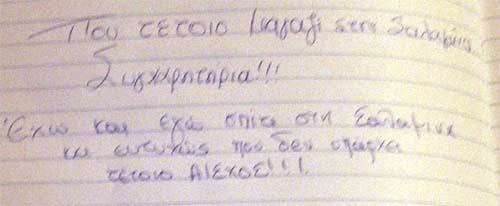 Που τετοιο μαγαζι στην Σαλαμίνα!
Συγχαρητήρια!!!
Έχω και εγώ σπίτι στη Σαλαμινα
κι ευτυχώς που δεν υπάρχει
τέτοιο ΑΙΣΧΟΣ!!!!